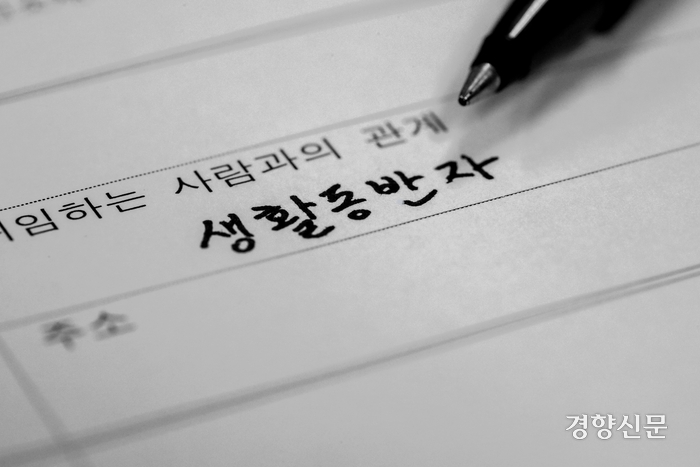 위임하는 사람과의 관계
생활동반자
주소
경향신문